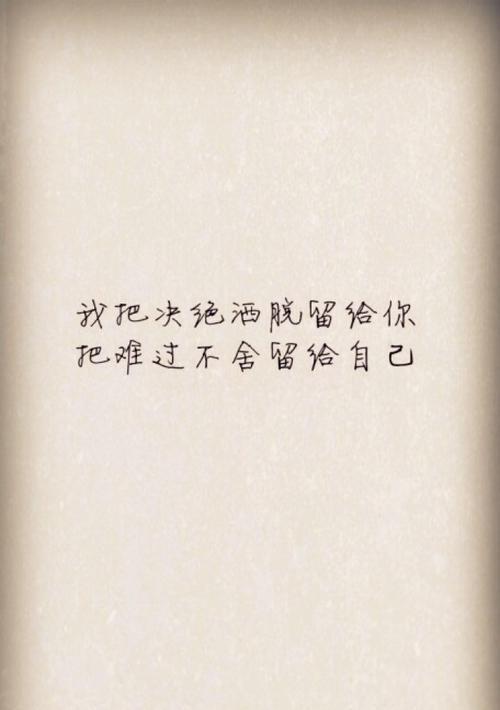 我把决绝洒脱留给你
把难过不舍留给自己